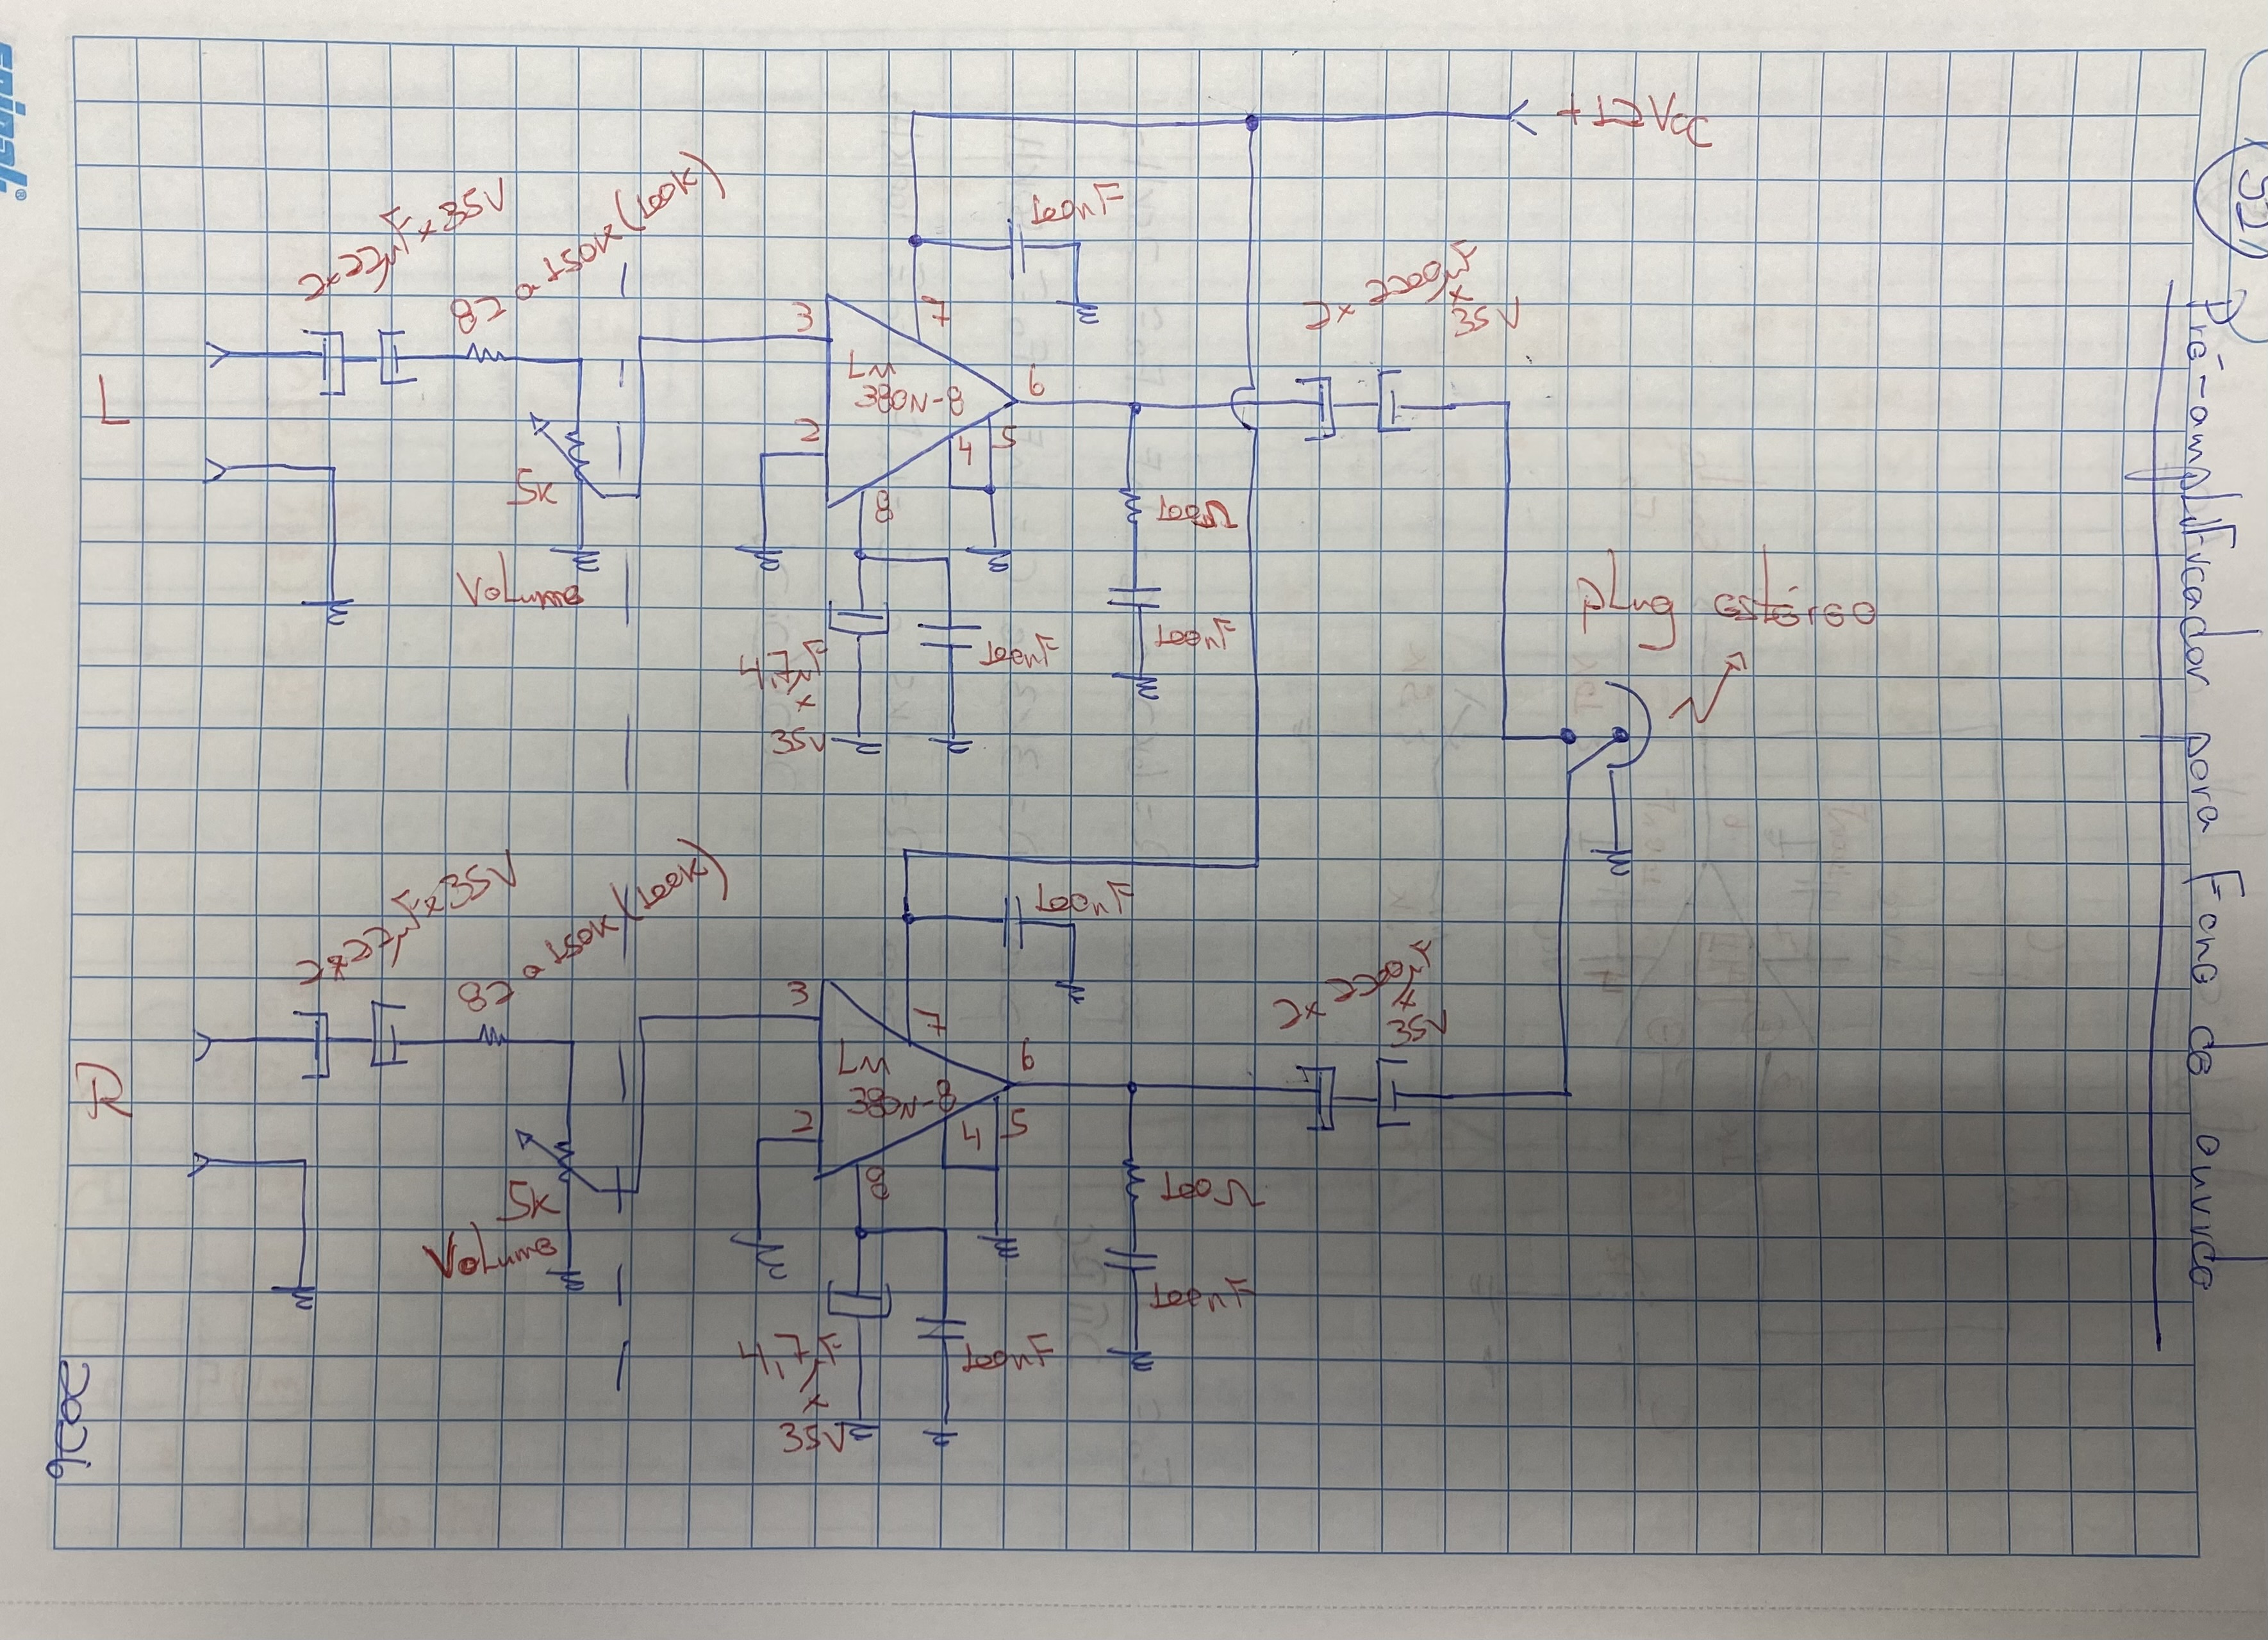 Pré-amplificador para Fone de ouvido
+12Vcc
100nF
2x22µF x 35V
82 a 150K (100K)
2x 2200µF
x
35V
L
3
7
LM
380N-8
6
2
4
5
8
5K
Volume
100Ω
100nF
4,7µF
x
35V
100nF
plug estéreo
100nF
2x22µF x 35V
82 a 150K (100K)
2x 2200µF
x
35V
R
3
7
LM
380N-8
6
2
4
5
8
5K
Volume
100Ω
100nF
4,7µF
x
35V
100nF
2026
spiral®